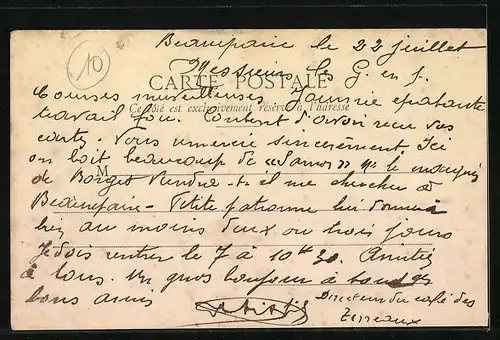 10
Beaurepaire le 22 juillet
Messieurs les G. en f.
CARTE POSTALE
Courses merveilleuses. Journée épatante
Ce côté est exclusivement réservé à l'adresse
travail fou. Content d'avoir recu vos
cartes. Vous remercie sincèrement. Ici
on boit beaucoup de "Samos"
M
de
à
Beaurepaire - Petite patronne lui donnera
bien au moins deux ou trois jours
Je dois rentrer le 7 à 10h 30. Amitiés
à tous. Un gros bonjour à tous
bons amis
Directeur du café des
Terreaux